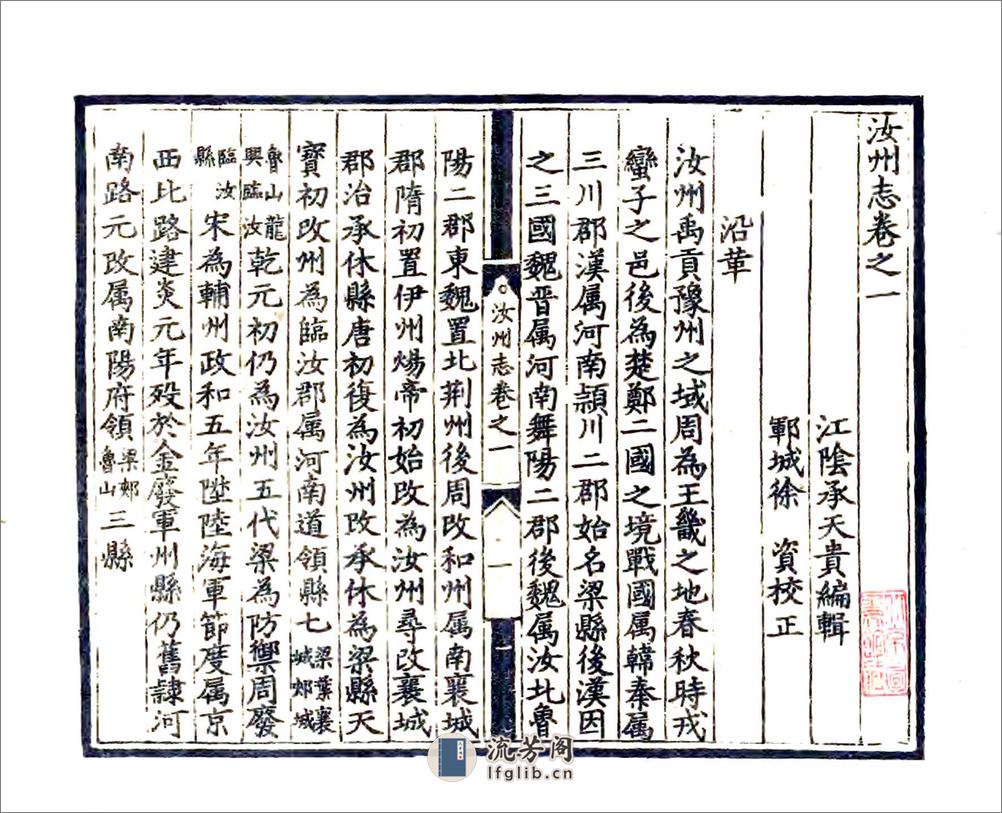 汝州志卷之一
江陰承天貴編輯
鄆城徐 資校正
沿革
汝州禹貢豫州之域周為王畿之地春秋時戎
蠻子之邑後為楚鄭二國之境戰國属韓秦属
三川郡漢属河南潁川二郡始名梁縣後漢因
之三國魏晋属河南舞陽二郡後魏属汝北魯
汝州志卷之一
一
陽二郡東魏置北荆州後周改和州属南襄城
郡隋初置伊州煬帝初始改為汝州尋改襄城
郡治承休縣唐初復為汝州改承休為梁縣天
寳初改州為臨汝郡属河南道領縣七梁葉襄城郟城
魯山龍興臨汝乾元初仍為汝州五代梁為防禦周廢
臨汝縣宋為輔州政和五年陞陸海軍節度属京
西北路建炎元年殁於金廢軍州縣仍舊隷河
南路元改属南陽府領梁郟魯山三縣
流芳阁
lfglib.cn